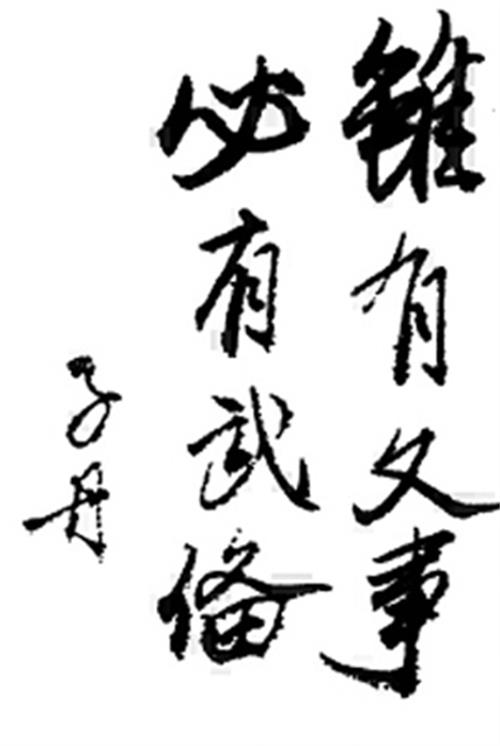 雖有文事
必有武備
子丹